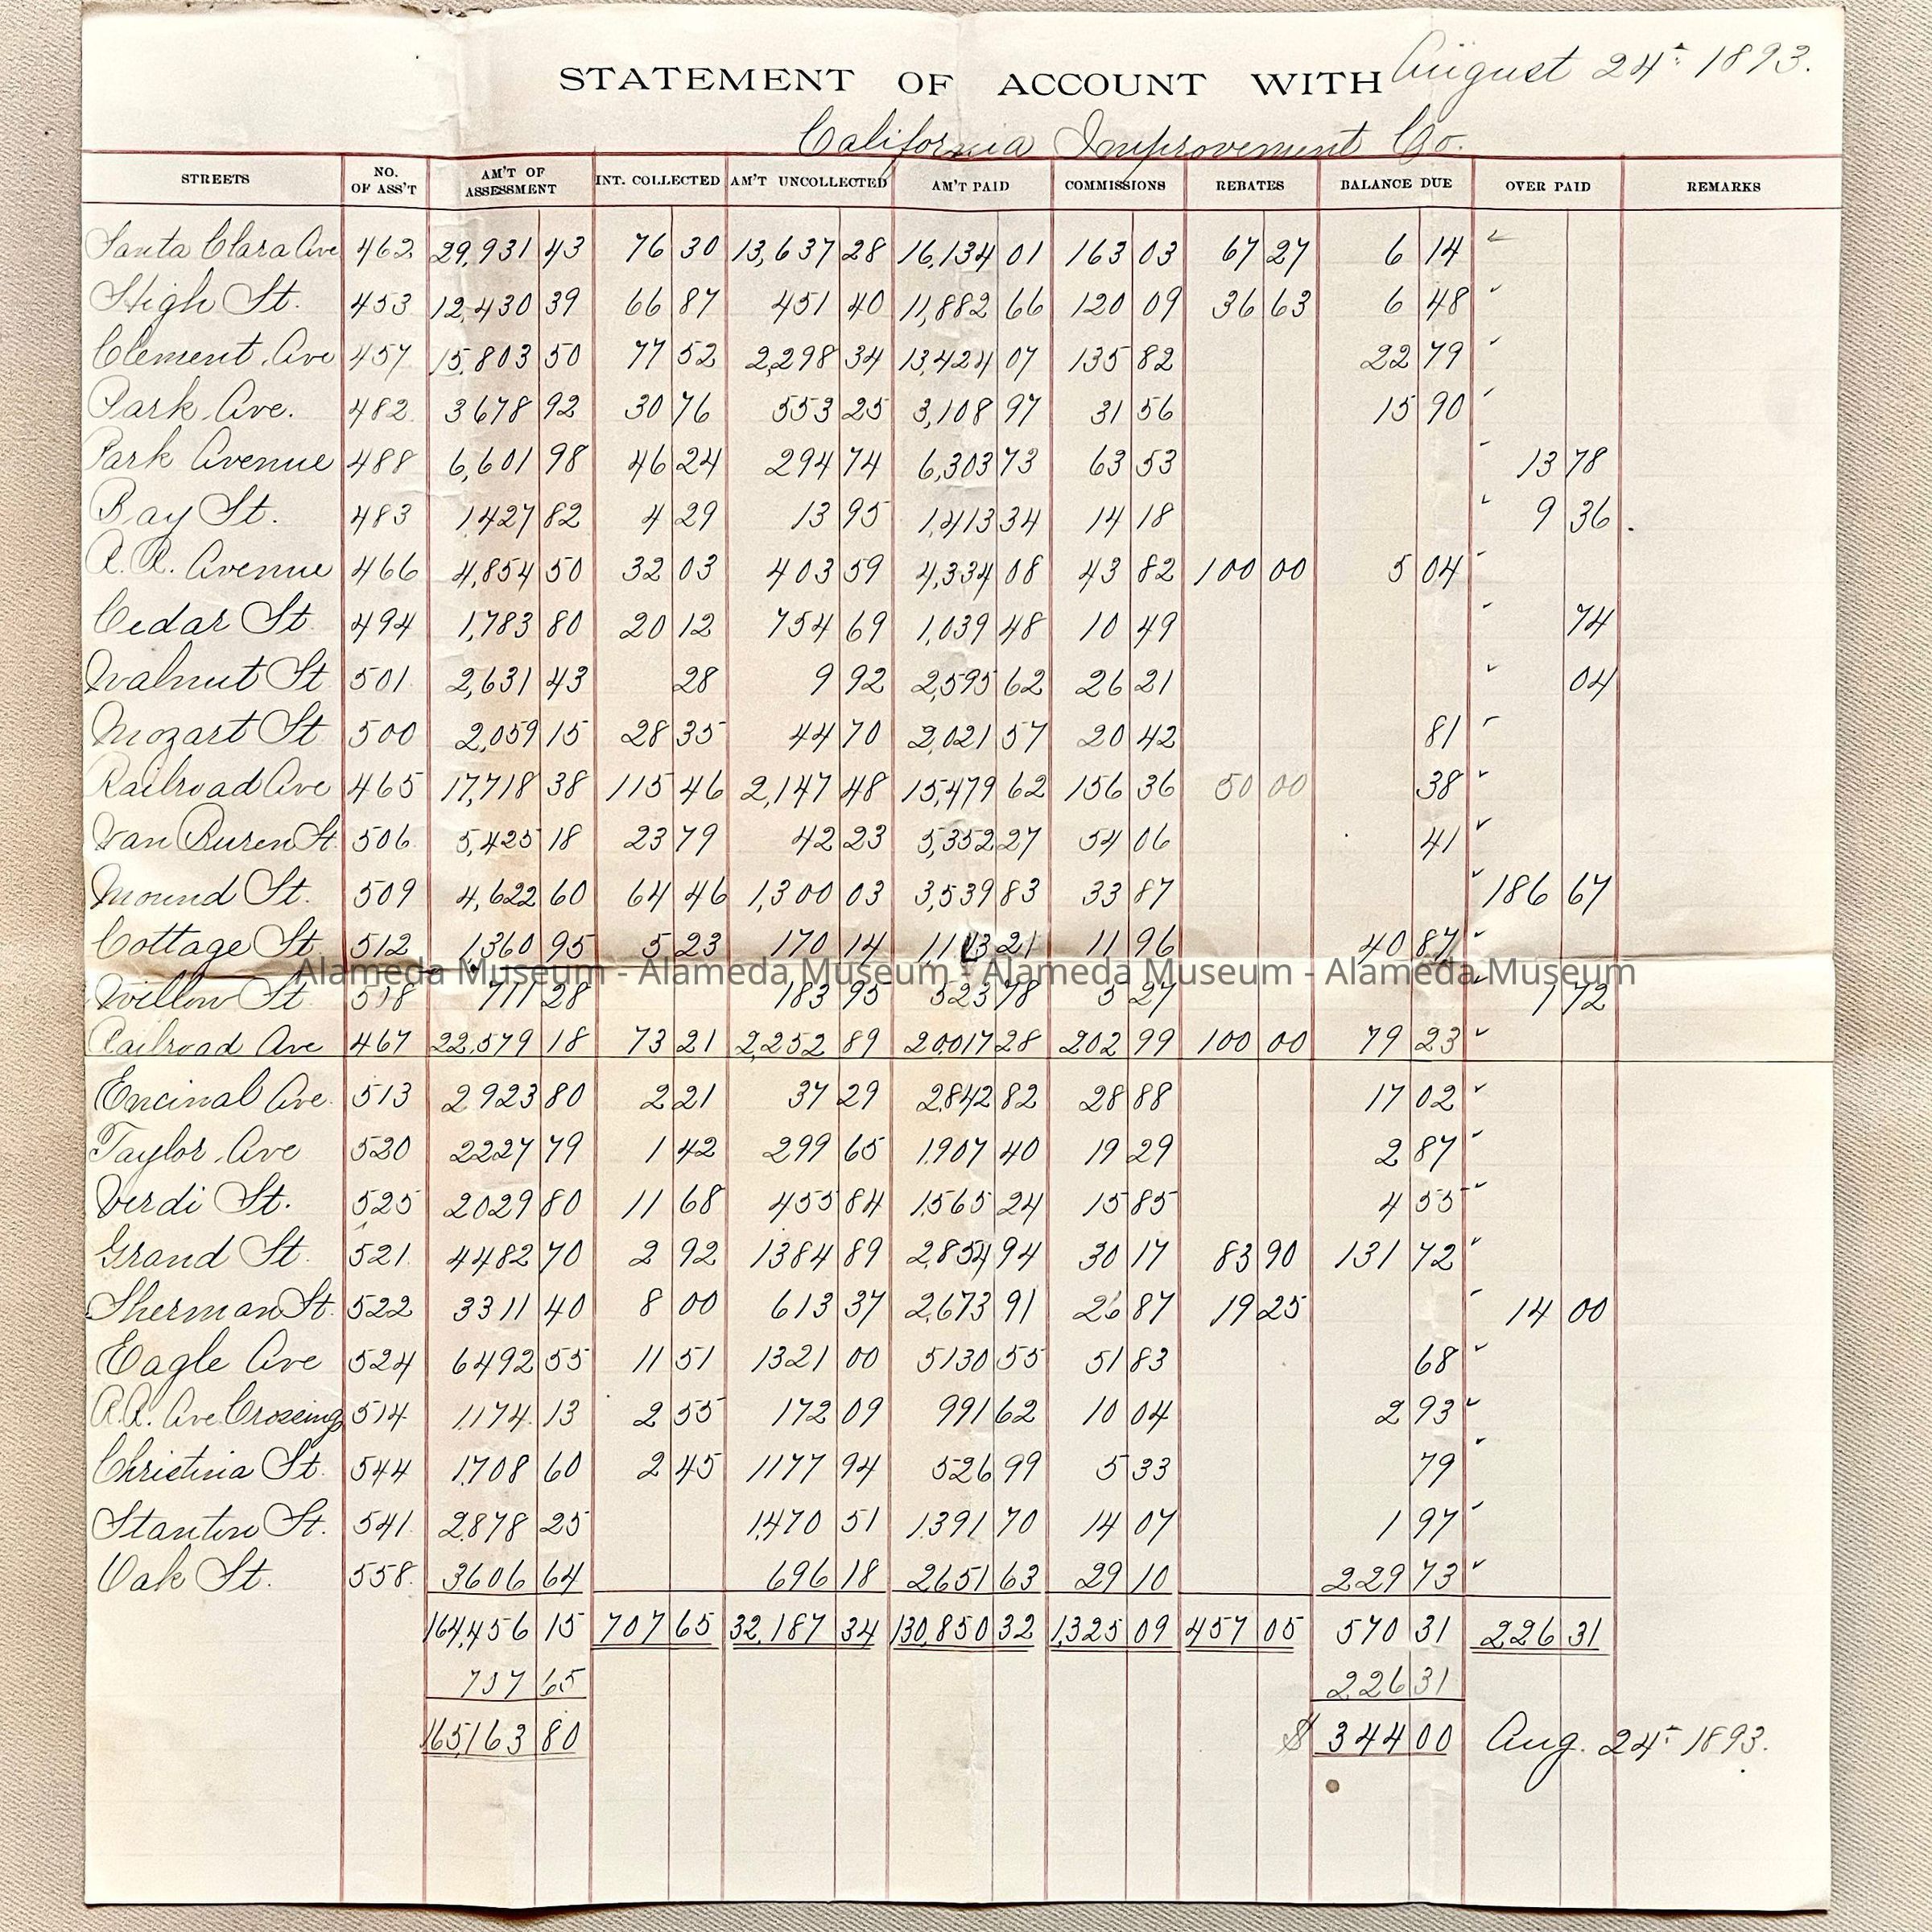 August 24th 1893.
STATEMENT OF ACCOUNT WITH
California Improvement Co.
STREETS NO. OF ASS'T AM'T OF ASSESSMENT INT. COLLECTED AM'T UNCOLLECTED AM'T PAID COMMISSIONS REBATES BALANCE DUE OVER PAID REMARKS
Santa Clara Ave 462 29,931 43 76 30 13,637 28 16,134 01 163 03 67 27 6 14
High St. 453 12,430 39 66 87 451 40 11,882 66 120 09 36 63 6 48
Clement Ave 457 15,803 50 77 52 2,298 34 13,424 07 135 82 22 79
Park Ave. 482 3678 92 30 76 553 25 3,108 97 31 56 15 90
Park Avenue 488 6,601 98 46 24 294 74 6,303 73 63 53 13 78
Bay St. 483 1427 82 4 29 13 95 1,413 34 14 18 9 36
R.R. Avenue 466 4,854 50 32 03 403 59 4,334 08 43 82 100 00 5 04
Cedar St. 494 1,783 80 20 12 754 69 1,039 48 10 49 74
Walnut St 501 2,631 43 28 9 92 2,595 62 26 21 04
Mozart St 500 2,059 15 28 35 44 70 2,021 57 20 42 81
Railroad Ave 465 17,718 38 115 46 2,147 48 15,479 62 156 36 50 00 38
Van Buren St. 506 5,425 18 23 79 42 23 5,352 27 54 06 41
Mound St. 509 4,622 60 64 46 1,300 03 3,539 83 33 87 186 67
Cottage St 512 1,360 95 5 23 170 14 1,143 21 11 96 40 87
Alameda Museum - Alameda Museum - Alameda Museum - Alameda Museum
Willow St. 518 711 28 183 95 523 78 5 27 1 72
Railroad Ave 467 22,579 18 73 21 2,252 89 20,017 28 202 99 100 00 79 23
Encinal Ave. 513 2923 80 2 21 37 29 2,842 82 28 88 17 02
Taylor Ave 520 2227 79 1 42 299 65 1,907 40 19 29 2 87
Verdi St. 525 2029 80 11 68 455 84 1,565 24 15 85 4 55
Grand St. 521 4482 70 2 92 1384 89 2,854 94 30 17 83 90 131 72
Sherman St. 522 3311 40 8 00 613 37 2,673 91 26 87 19 25 14 00
Eagle Ave 524 6492 55 11 51 1321 00 5130 55 51 83 68
R.R. Ave Crossing 514 1174 13 2 55 172 09 991 62 10 04 2 93
Christina St. 544 1,708 60 2 45 1177 94 526 99 5 33 79
Stanton St. 541 2,878 25 1,470 51 1,391 70 14 07 1 97
Oak St. 558 3606 64 696 18 2651 63 29 10 229 73
164,456 15 707 65 32,187 34 130,850 32 1,325 09 457 05 570 31 226 31
707 65 226 31
165,163 80 $ 344 00 Aug. 24th 1893.